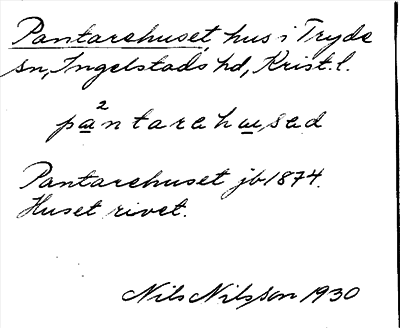 Pantarehuset, hus i Tryde
sn, Ingelstads hd, Krist. l.
2
pantarehu̱sed
Pantarehuset jb 1874.
Huset rivet.
Nils Nilsson 1930